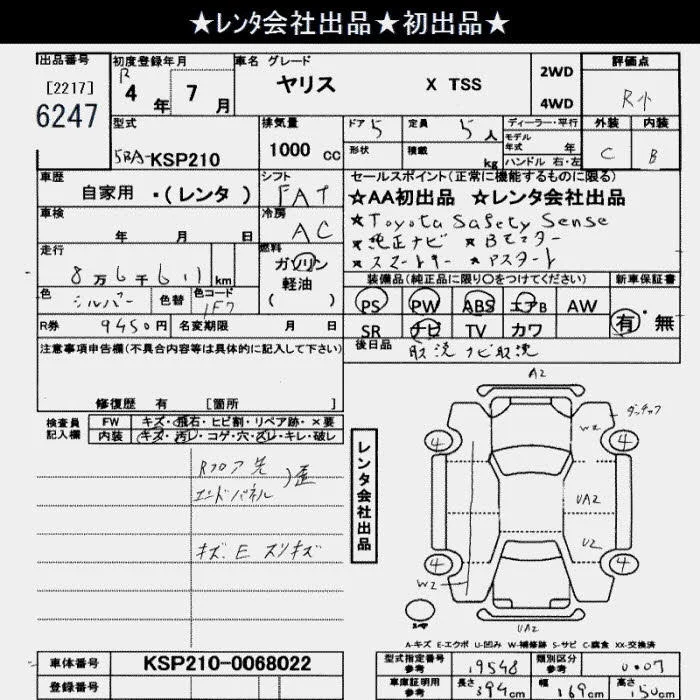 ★レンタ会社出品★初出品★
出品番号 初度登録年月 車名 グレード 評価点
[2217]
6247
R4年7月
ヤリス X TSS
2WD
4WD
R小
型式
5BA-KSP210
排気量
1000 cc
ドア 5 定員 5人
形状 積載 kg
ディーラー・平行
モデル年式 年
ハンドル 右・左
外装 内装
C B
車歴
自家用・(レンタ)
シフト
FAT
セールスポイント(正常に機能するものに限る)
★AA初出品 ★レンタ会社出品
★Toyota Safety Sense
★純正ナビ ★Bモニター
★スマートキー ★Pスタート
車検 年 月 日
冷房
AC
走行
8万6千611km
燃料
ガソリン
軽油
( )
色 シルバー 色替 色コード 1F7
装備品(純正品に限り○をつけてください) 新車保証書
PS PW ABS エアB AW
SR ナビ TV カワ
有・無
R券 9450円 名変期限 月 日
後日品 取説 ナビ取説
注意事項申告欄(不具合内容等は具体的に記入して下さい)
修復歴 有 [箇所 ]
検査員記入欄
FW キズ・飛石・ヒビ割・リペア跡・×要
内装 キズ・汚レ・コゲ・穴・ズレ・キレ・破レ
Rフロア先
エンドパネル )歪
キズE スリキズ
レンタ会社出品
A2
W2
4 4
UA2
U2
4 4
W2
UA2
A-キズ E-エクボ U-凹み W-補修跡 S-サビ C-腐食 XX-交換済
車体番号 KSP210-0068022
登録番号
型式指定番号参考 19548 類別区分参考 0007
車庫証明用参考 長さ 394cm 幅 169cm 高さ 150cm